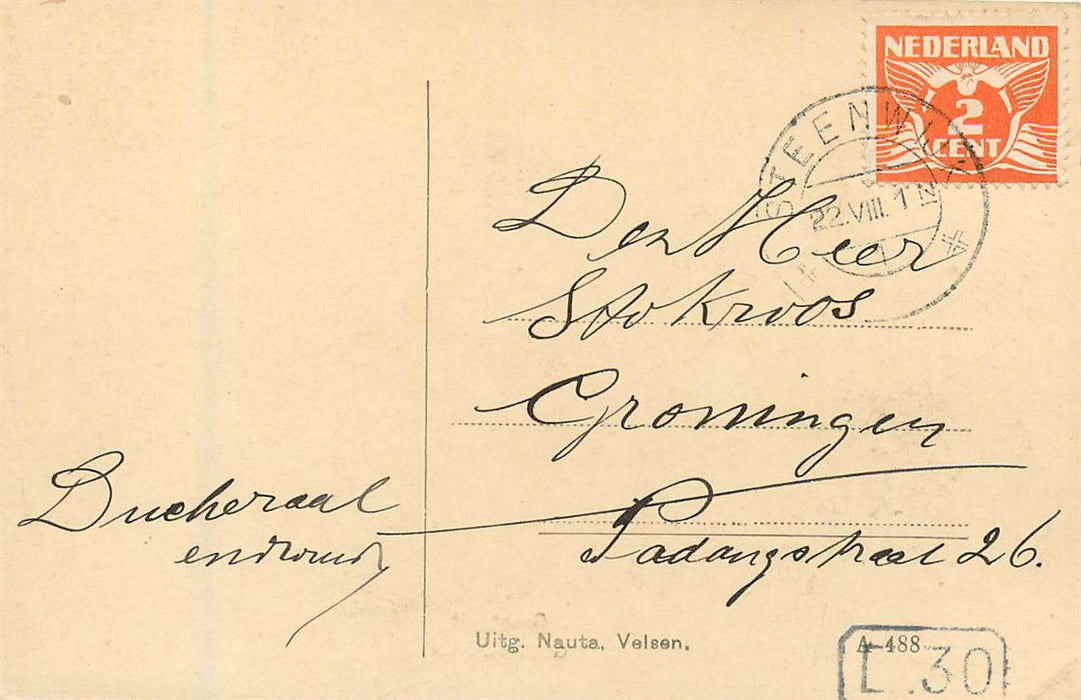 NEDERLAND
2
CENT
STEENWIJK
22.VIII.1
1
Den Heer
Stokroos
Groningen
Padangstraat 26.
Uitg. Nauta, Velsen.
A 488
30